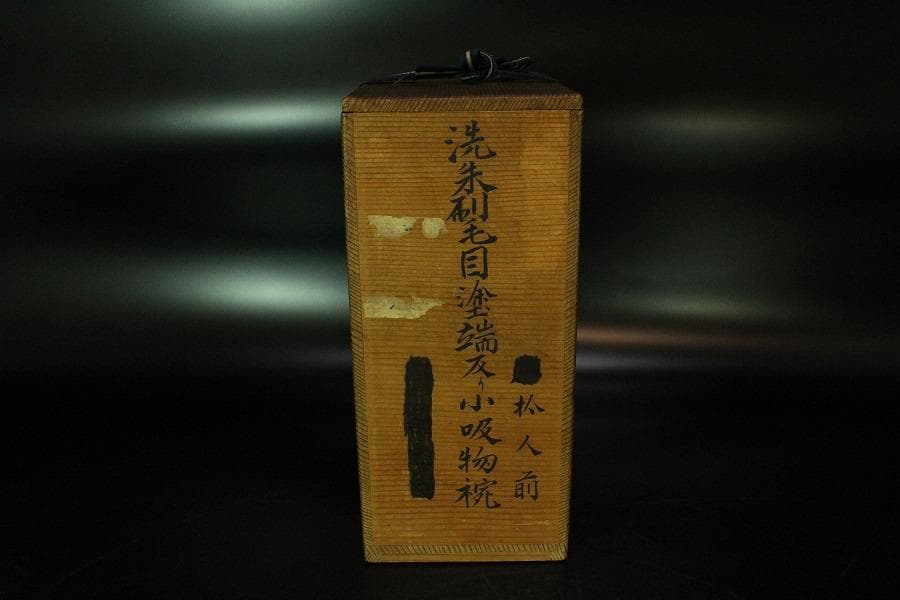 拾人前
洗朱刷毛目塗端反り小吸物椀